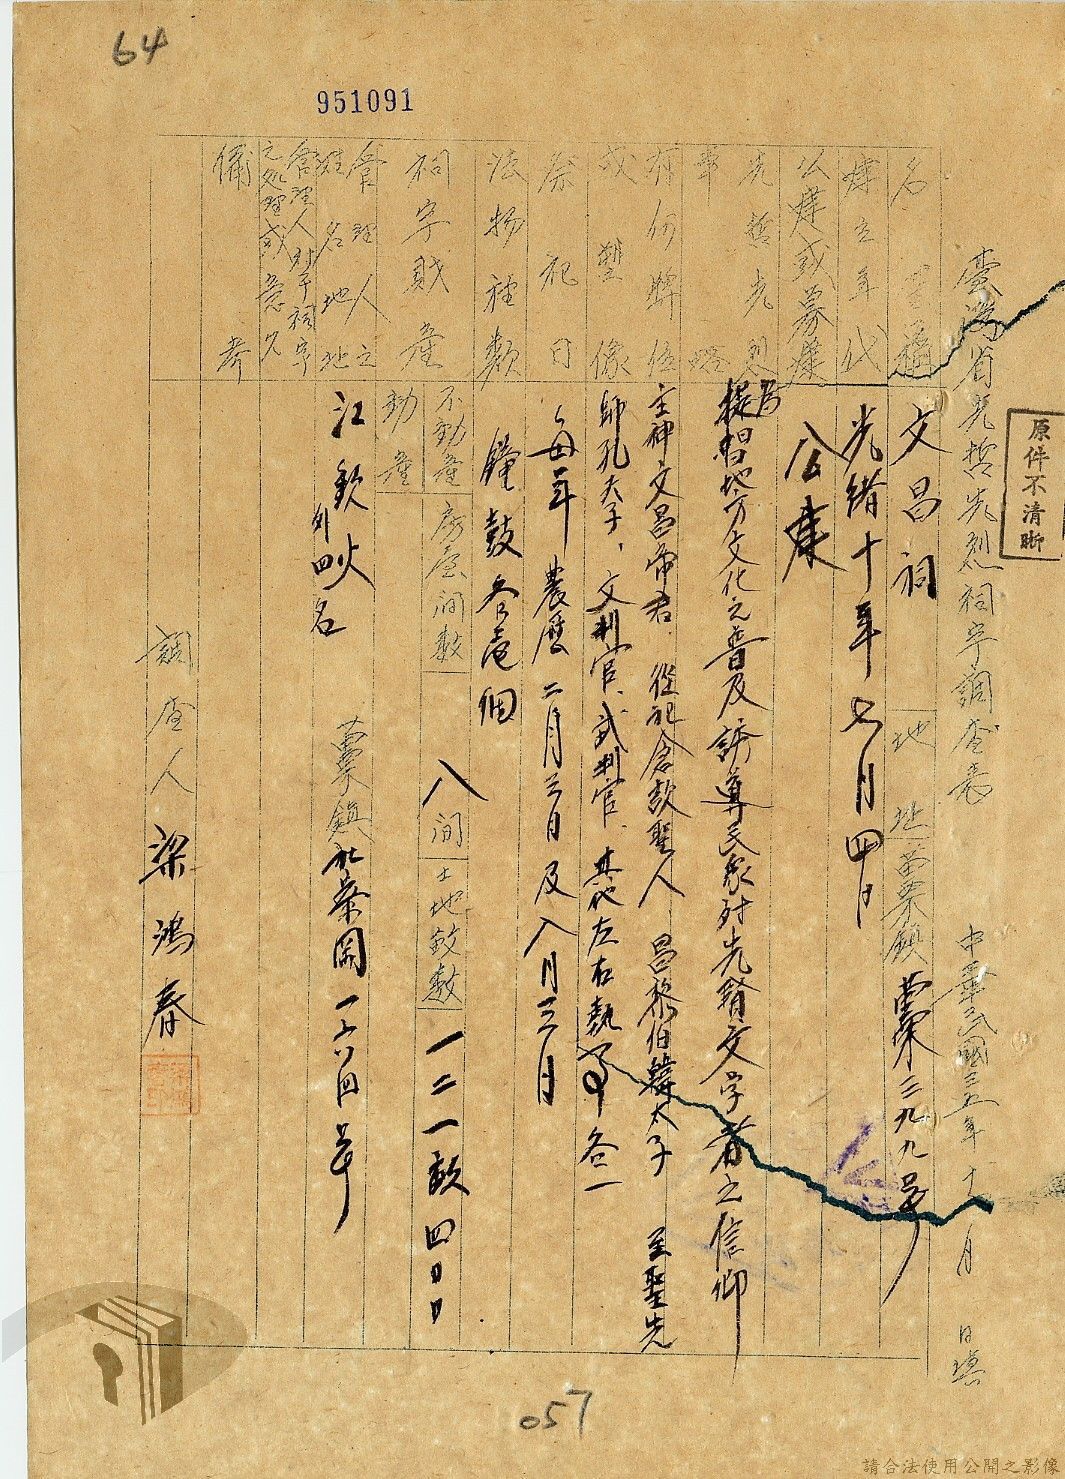 64
951091
臺灣省先哲先烈祠宇調查表 中華民國三五年十 月 日填
原件不清晰
名 稱 文昌祠 地址 粟鎮 粟三九九号
建立年代 光緒十年七月四日
公建或募建 公建
先哲先烈事略 為提倡地方文化之普及 誘導民家对先賢文学者之信仰
有何牌位 主神文昌帝君 從祀倉頡聖人 昌黎伯韓太子 至聖先
或塑像 師孔夫子、文判官、武判官、其他左右執事各一
祭祀日 每年農曆二月三日及八月三日
法物種類 鐘鼓各 個
祠宇財產 不動產 房屋間數 八間 土地敏數 一二一敏四〇〇
動產
管理人之姓名地址 江欽火 外四名 粟鎮社寮岡一六四号
管理人對于祠宇之处理或意見
備考
調查人 梁鴻春
057
請合法使用公開之影像